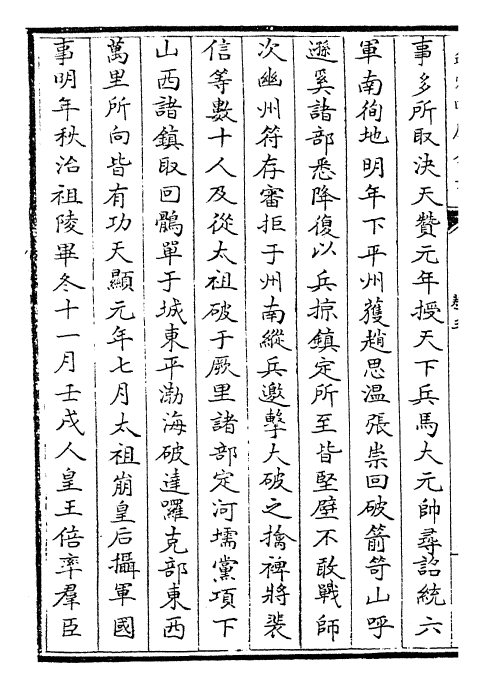 事多所取決天贊元年授天下兵馬大元帥尋詔統六
軍南徇地明年下平州獲趙思溫張崇回破箭笴山呼
遜奚諸部悉降復以兵掠鎮定所至皆堅壁不敢戰師
次幽州符存審拒于州南縱兵邀擊大破之擒裨將裴
信等數十人及從太祖破于厥里諸部定河壖黨項下
山西諸鎮取回鶻單于城東平渤海破達囉克部東西
萬里所向皆有功天顯元年七月太祖崩皇后攝軍國
事明年秋治祖陵畢冬十一月壬戌人皇王倍率羣臣